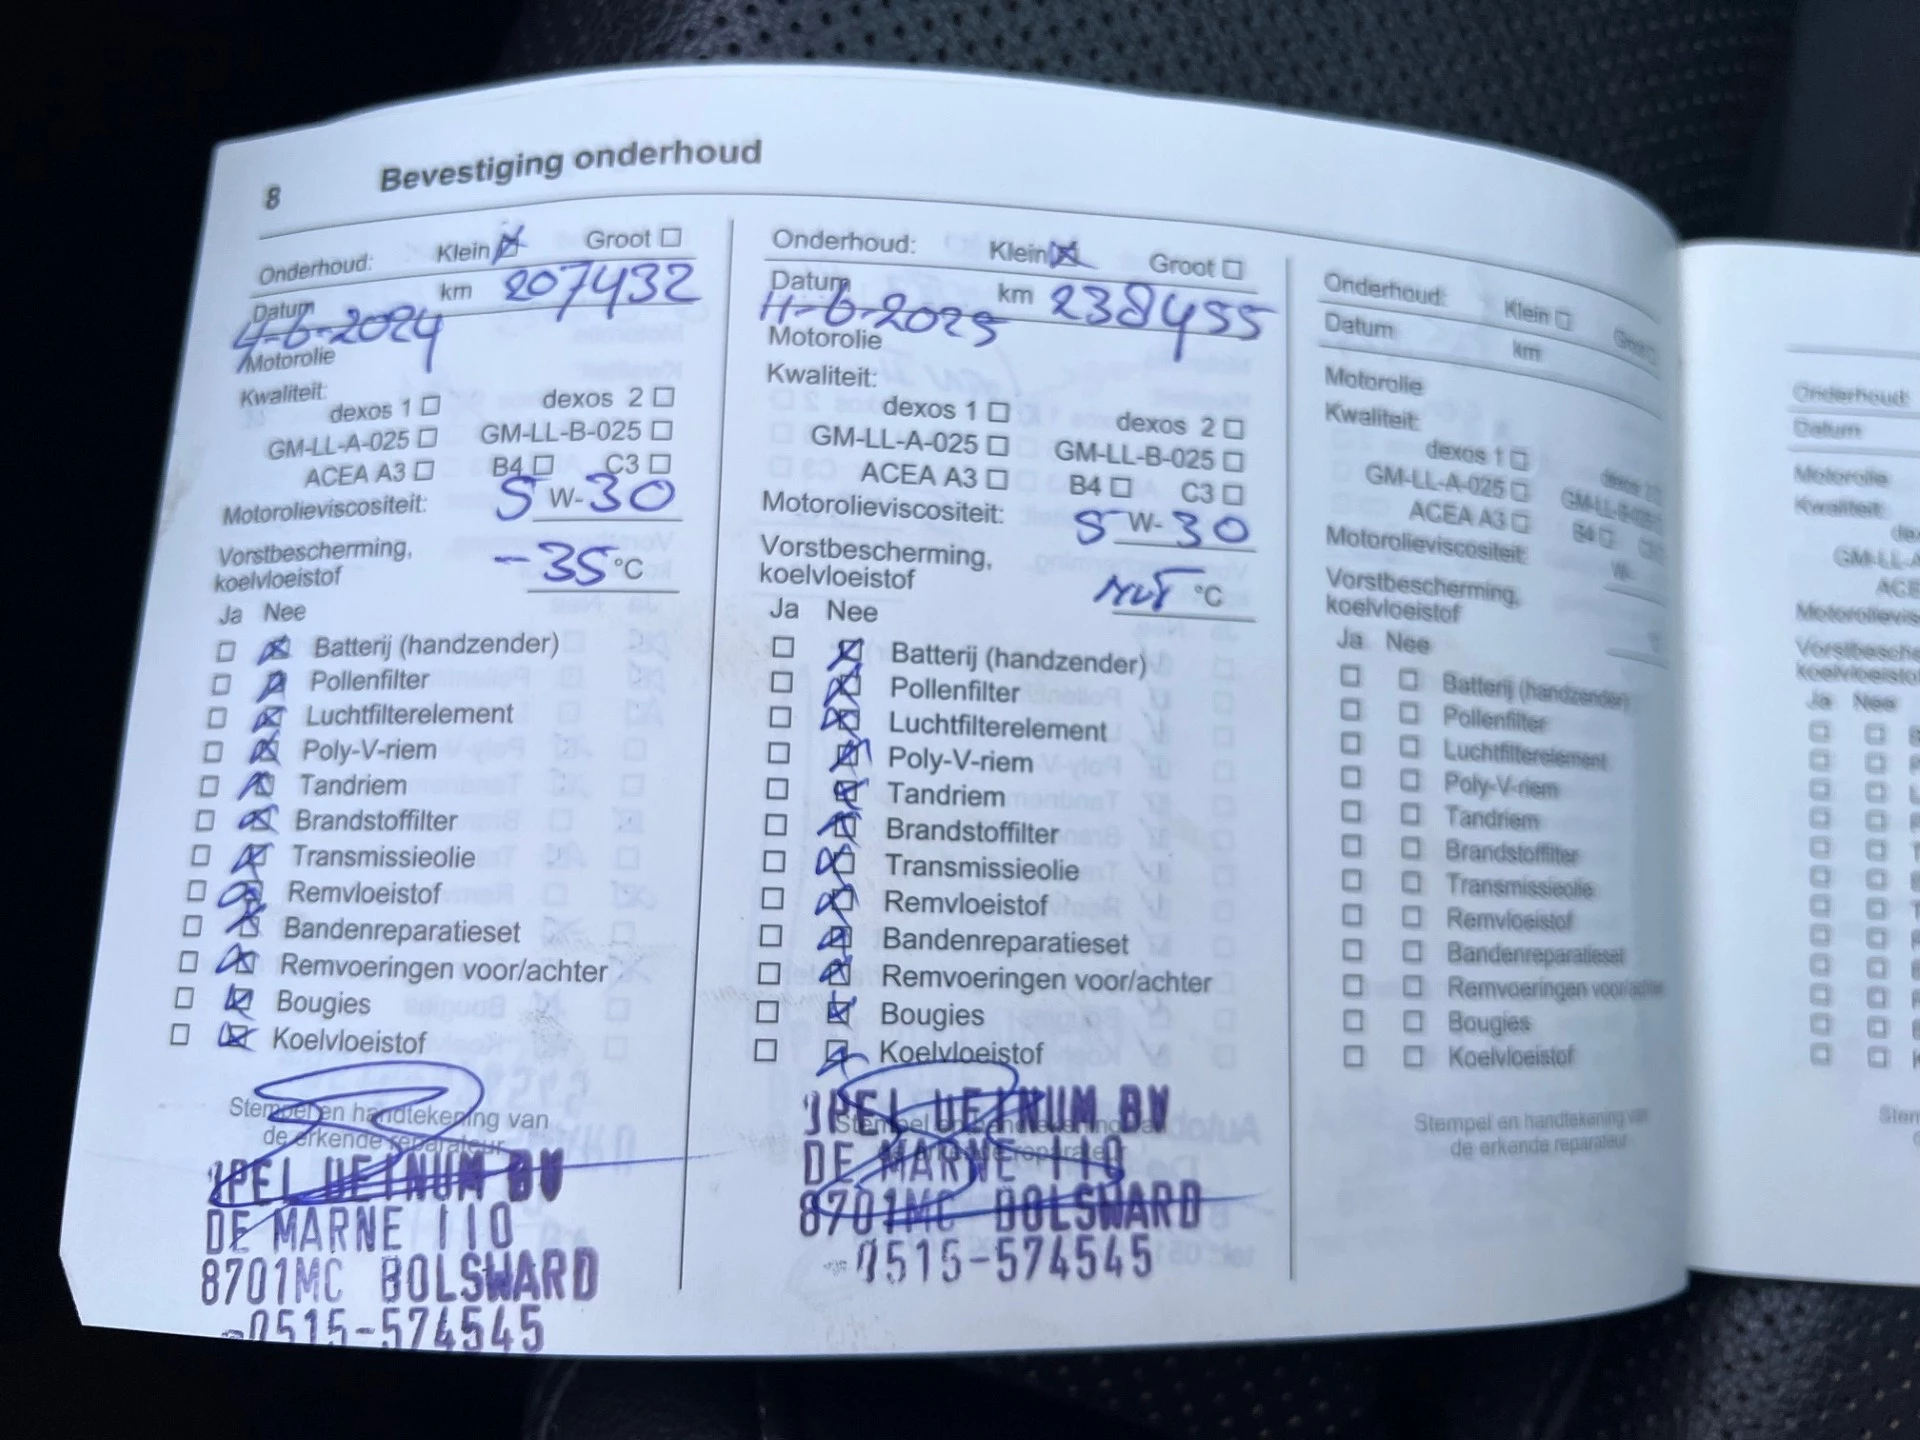 8 Bevestiging onderhoud
Onderhoud: Klein Groot
Datum km 207432
4-6-2024
Motorolie
Kwaliteit:
dexos 1 dexos 2
GM-LL-A-025 GM-LL-B-025
ACEA A3 B4 C3
Motorolieviscositeit: 5 W-30
Vorstbescherming,
koelvloeistof -35 °C
Ja Nee
Batterij (handzender)
Pollenfilter
Luchtfilterelement
Poly-V-riem
Tandriem
Brandstoffilter
Transmissieolie
Remvloeistof
Bandenreparatieset
Remvoeringen voor/achter
Bougies
Koelvloeistof
Stempel en handtekening van
de erkende reparateur
OPEL
DE MARNE 110
8701MC BOLSWARD
0515-574545
Onderhoud: Klein Groot
Datum km 238455
11-6-2025
Motorolie
Kwaliteit:
dexos 1 dexos 2
GM-LL-A-025 GM-LL-B-025
ACEA A3 B4 C3
Motorolieviscositeit: 5 W-30
Vorstbescherming,
koelvloeistof °C
Ja Nee
Batterij (handzender)
Pollenfilter
Luchtfilterelement
Poly-V-riem
Tandriem
Brandstoffilter
Transmissieolie
Remvloeistof
Bandenreparatieset
Remvoeringen voor/achter
Bougies
Koelvloeistof
OPEL
DE MARNE 110
8701MC BOLSWARD
0515-574545
Onderhoud: Klein Groot
Datum km
Motorolie
Kwaliteit:
dexos 1 dexos 2
GM-LL-A-025 GM-LL-B-025
ACEA A3 B4 C3
Motorolieviscositeit: W-
Vorstbescherming,
koelvloeistof
Ja Nee
Batterij (handzender)
Pollenfilter
Luchtfilterelement
Poly-V-riem
Tandriem
Brandstoffilter
Transmissieolie
Remvloeistof
Bandenreparatieset
Remvoeringen voor/achter
Bougies
Koelvloeistof
Stempel en handtekening van
de erkende reparateur
Onderhoud:
Datum
Motorolie
Kwaliteit:
Ja Nee